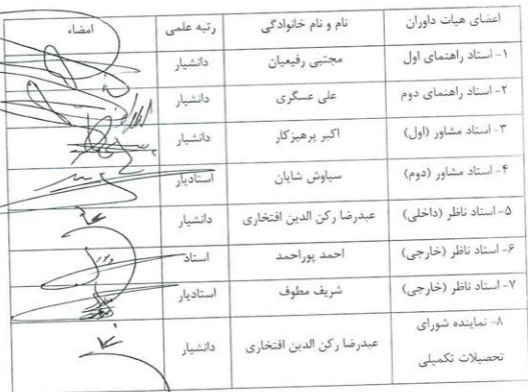 اعضای هیات داوران نام و نام خانوادگی رتبه علمی امضاء
۱- استاد راهنمای اول مجتبی رفیعیان دانشیار
۲- استاد راهنمای دوم علی عسگری دانشیار
۳- استاد مشاور (اول) اکبر پرهیزکار دانشیار
۴- استاد مشاور (دوم) سیاوش شایان استادیار
۵- استاد ناظر (داخلی) عبدرضا رکن الدین افتخاری دانشیار
۶- استاد ناظر (خارجی) احمد پوراحمد استاد
۷- استاد ناظر (خارجی) شریف مطوف استادیار
۸- نماینده شورای
تحصیلات تکمیلی عبدرضا رکن الدین افتخاری دانشیار